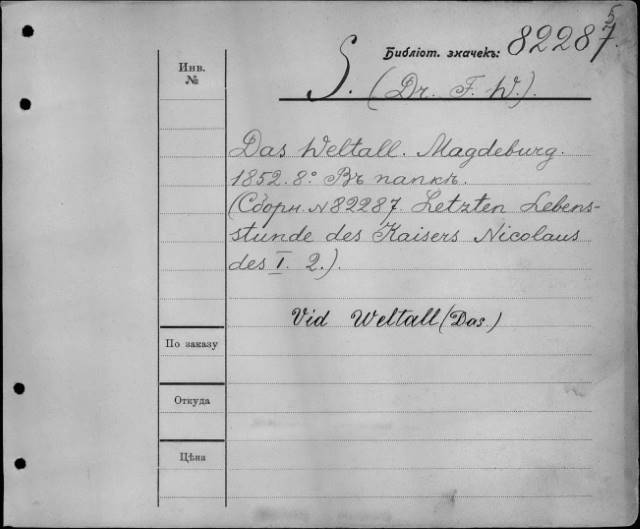 5
Библіот. значекъ: 82287.
S. (Dr. F. W.).
Инв.
№
Das Weltall. Magdeburg.
1852. 8° Въ папкѣ.
(Сборн. № 82287. Letzten Lebens-
stunde des Kaisers Nicolaus
des I. 2.).
Vid Weltall (Das.)
По заказу
Откуда
Цѣна